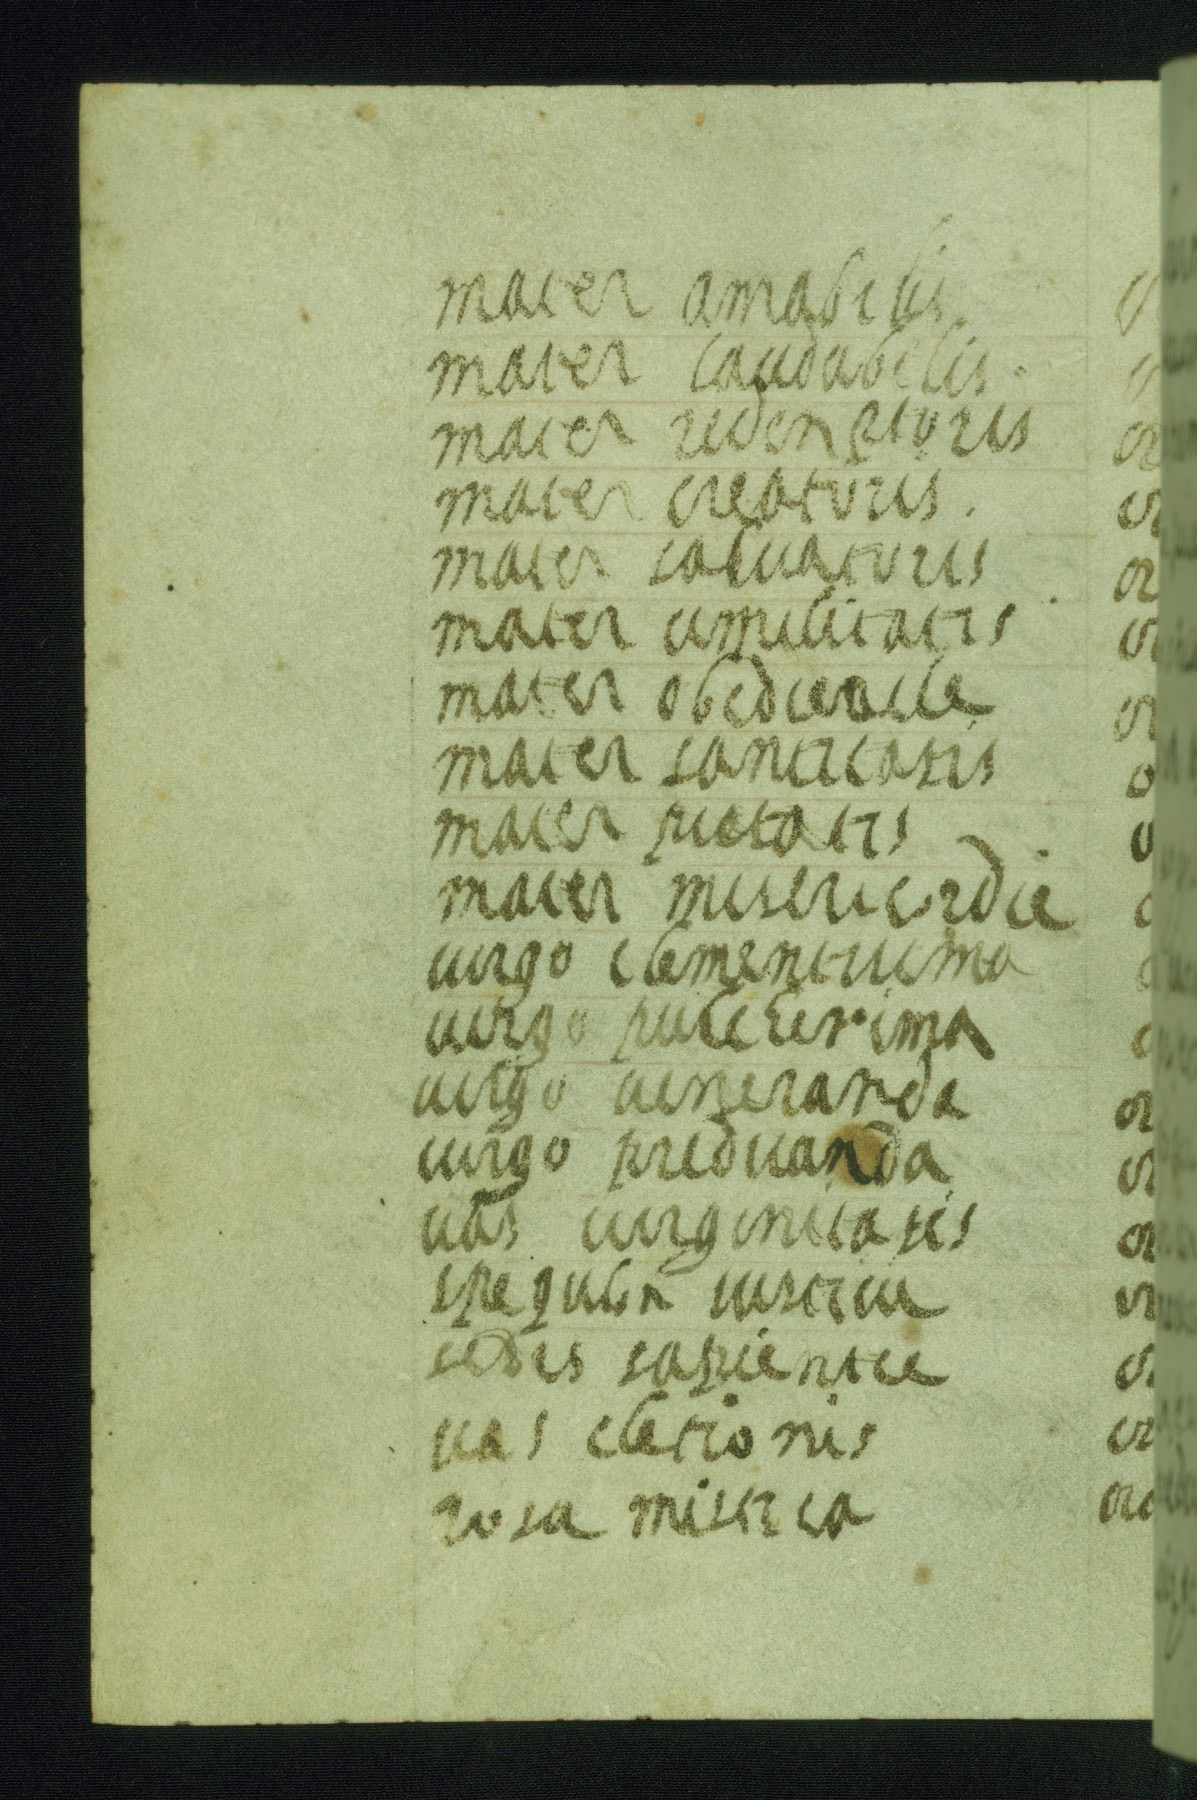 mater amabilis
mater laudabilis.
mater redenptoris
mater creatoris.
mater salvatoris
mater umilitatis
mater obedientie
mater santitatis
mater pietatis
mater misericordie
virgo clementissima
virgo pulcherima
virgo veneranda
virgo predicanda
vas virginitatis
spegulum iusticie
sedis sapientie
vas eletionis
rosa mistica